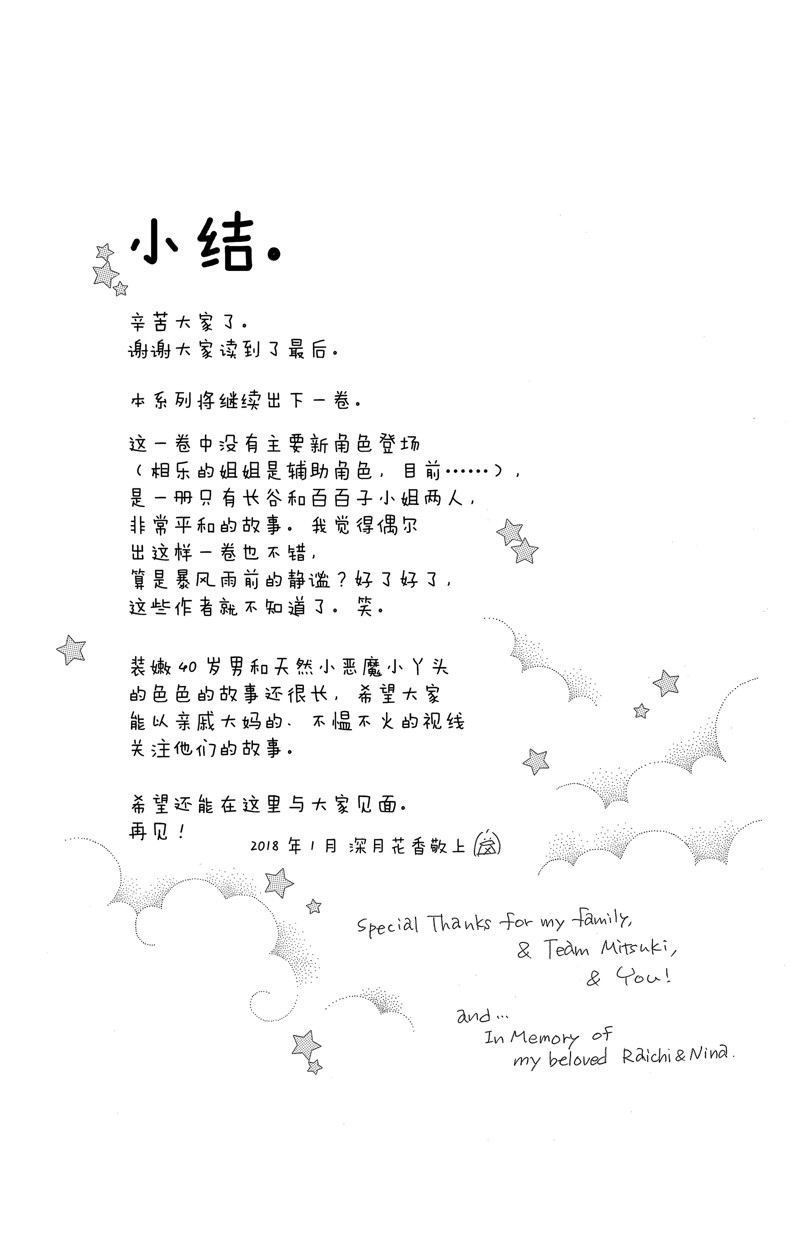 小结。
辛苦大家了。
谢谢大家读到了最后。
本系列将继续出下一卷。
这一卷中没有主要新角色登场
（相乐的姐姐是辅助角色，目前……），
是一册只有长谷和百百子小姐两人，
非常平和的故事。我觉得偶尔
出这样一卷也不错，
算是暴风雨前的静谧？好了好了，
这些作者就不知道了。笑。
装嫩40岁男和天然小恶魔小丫头
的色色的故事还很长，希望大家
能以亲戚大妈的、不愠不火的视线
关注他们的故事。
希望还能在这里与大家见面。
再见！
2018年1月 深月花香敬上
Special Thanks for my family,
& Team Mitsuki,
& You!
and...
In Memory of
my beloved Raichi & Nina.